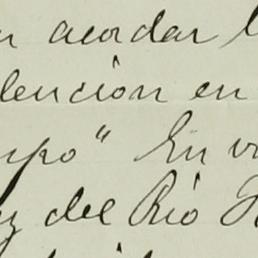 acordar
lencion en
po" En v
y del Rio